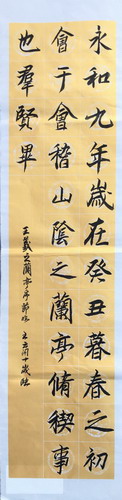 永和九年歲在癸丑暮春之初
會于會稽山陰之蘭亭脩稧事
也羣賢畢
王羲之蘭亭序節臨